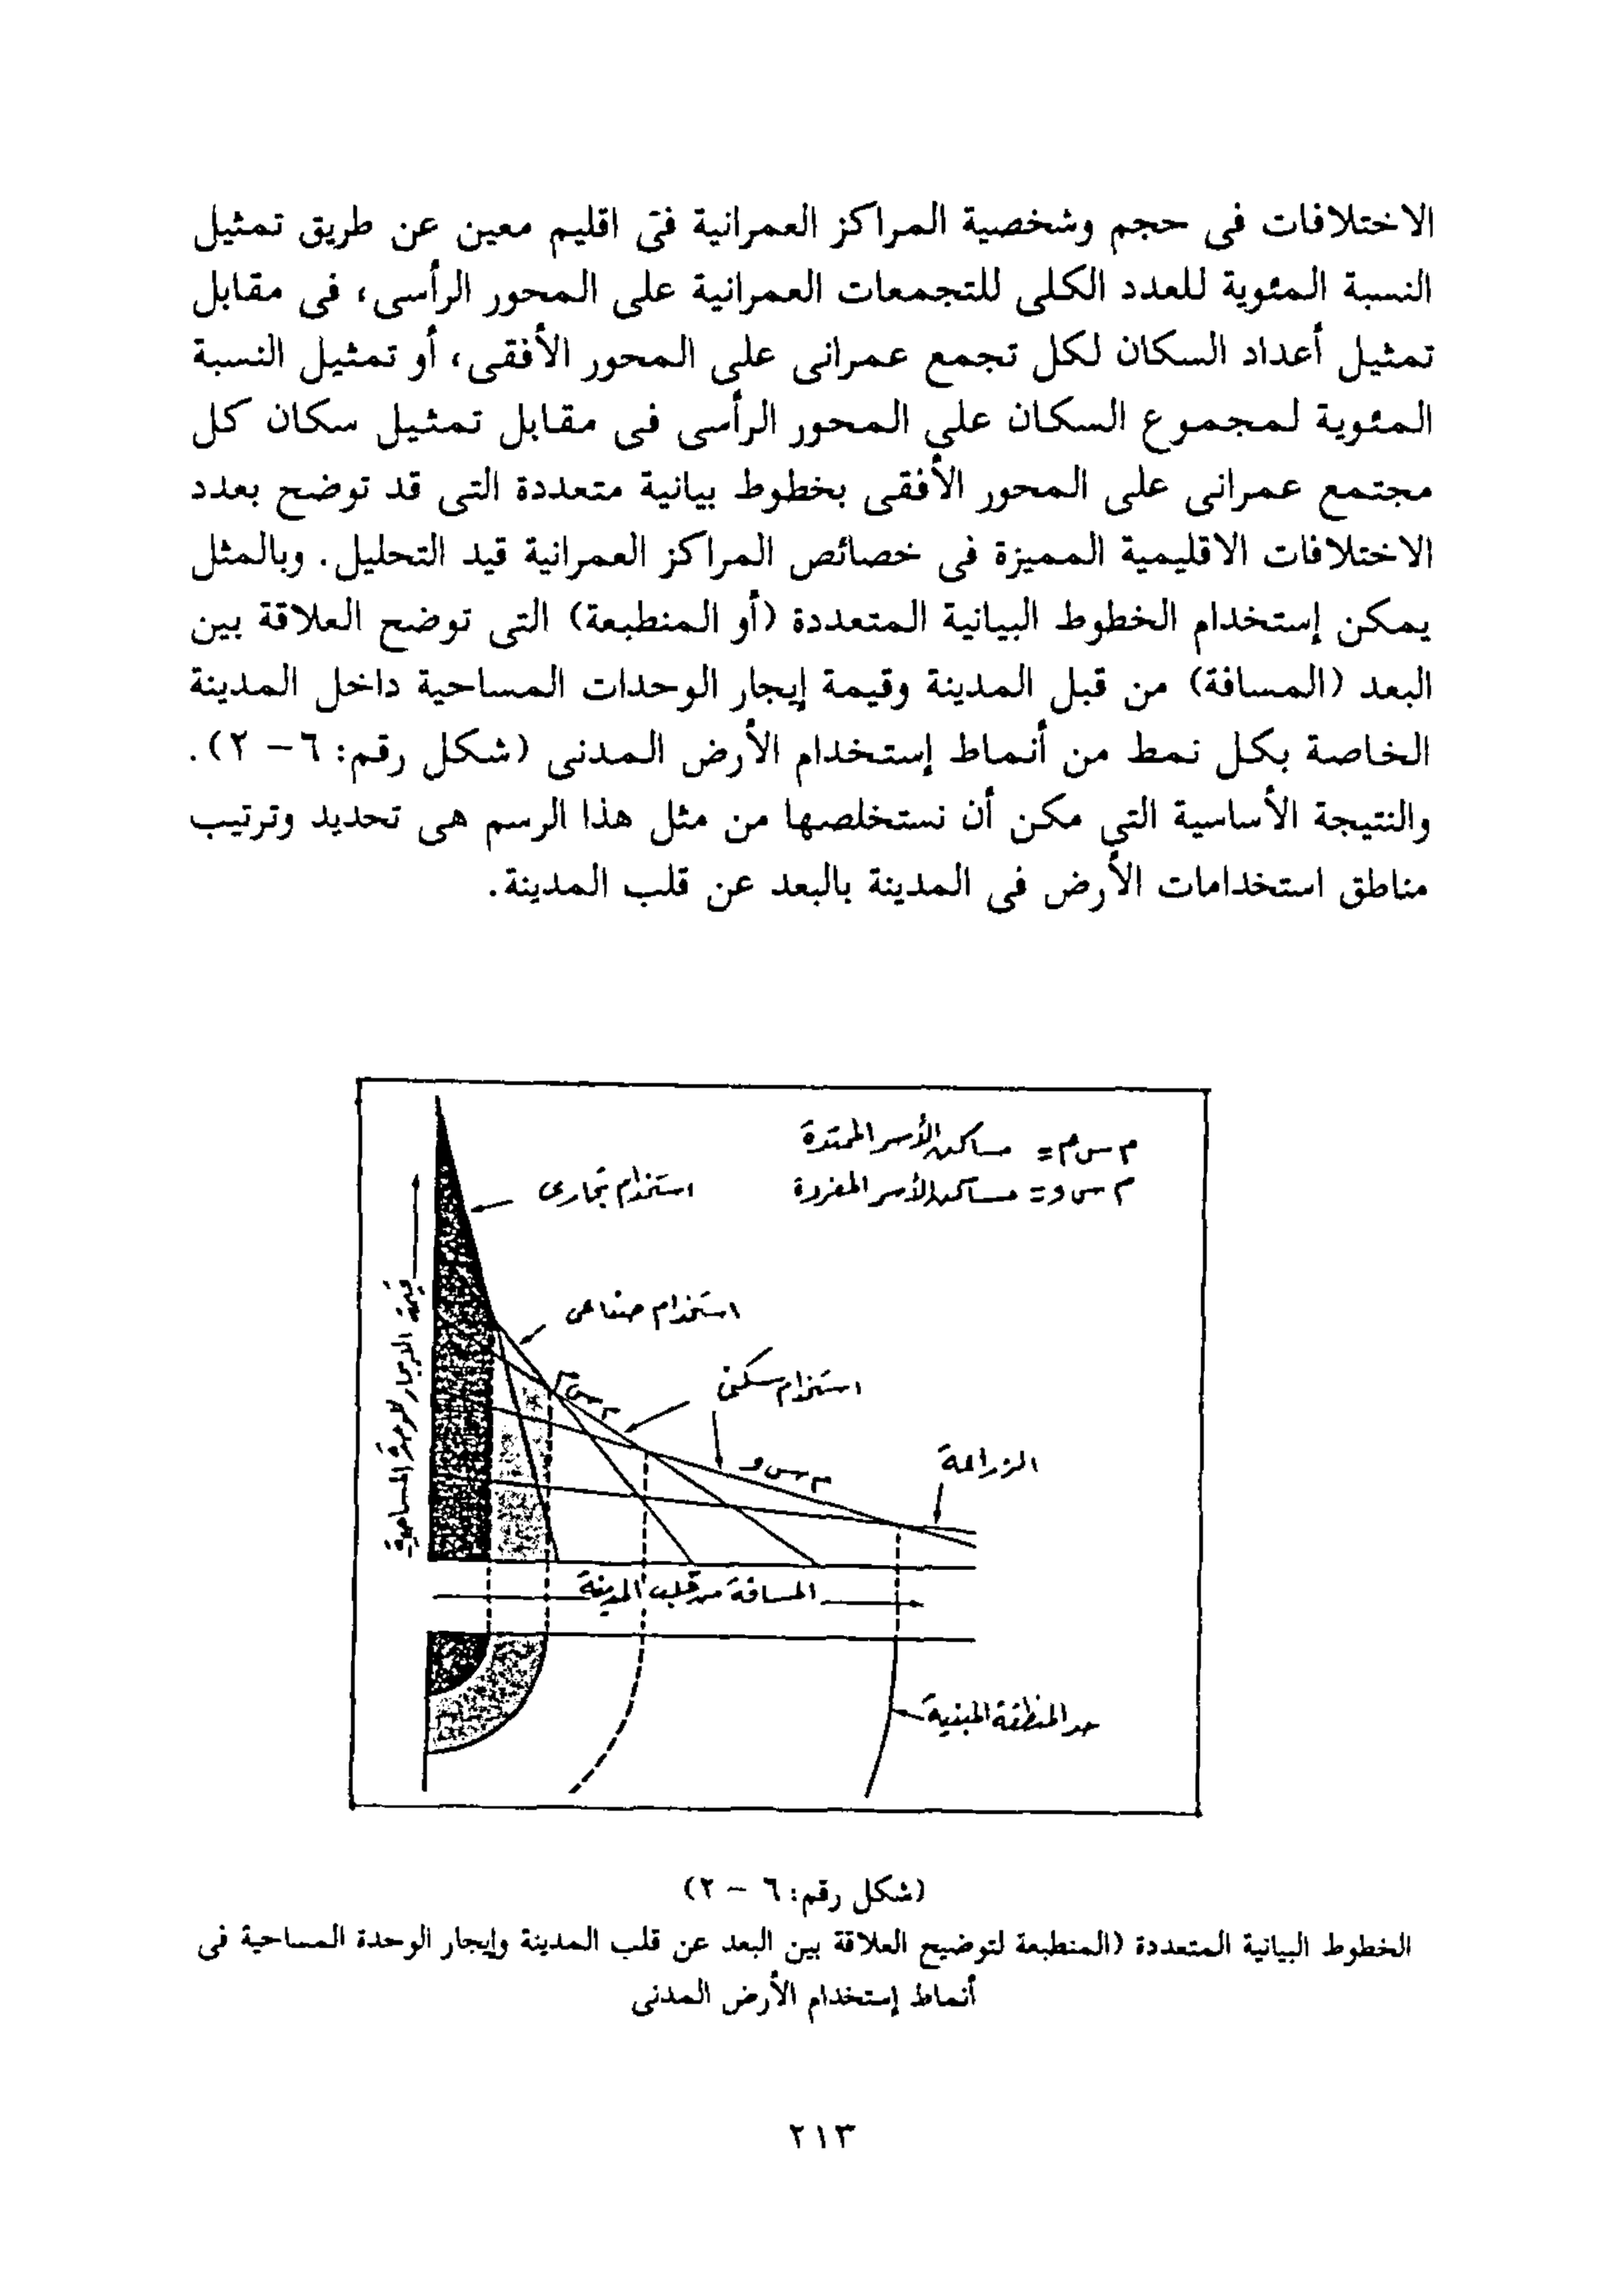 الاختلافات فى حجم وشخصية المراكز العمرانية فى اقليم معين عن طريق تمثيل
النسبة المئوية للعدد الكلى للتجمعات العمرانية على المحور الرأسى، فى مقابل
تمثيل أعداد السكان لكل تجمع عمرانى على المحور الأفقى، أو تمثيل النسبة
المئوية لمجموع السكان على المحور الرأسى فى مقابل تمثيل سكان كل
مجتمع عمرانى على المحور الأفقى بخطوط بيانية متعددة التى قد توضح بعدد
الاختلافات الاقليمية المميزة فى خصائص المراكز العمرانية قيد التحليل. وبالمثل
يمكن إستخدام الخطوط البيانية المتعددة (أو المنطبعة) التى توضح العلاقة بين
البعد (المسافة) من قبل المدينة وقيمة إيجار الوحدات المساحية داخل المدينة
الخاصة بكل نمط من أنماط إستخدام الأرض المدنى (شكل رقم: ٦ – ٢).
والنتيجة الأساسية التى مكن أن نستخلصها من مثل هذا الرسم هى تحديد وترتيب
مناطق استخدامات الأرض فى المدينة بالبعد عن قلب المدينة.
م س م = مساكن الأسر الممتدة
م س و = مساكن الأسر المفردة
استخدام تجارى
استخدام صناعى
م س م
استخدام سكنى
م س و
الزراعة
قيمة الايجار للوحدة المساحية
المسافة من قلب المدينة
حد المنطقة المبنية
(شكل رقم: ٦ – ٢)
الخطوط البيانية المتعددة (المنطبعة لتوضيح العلاقة بين البعد عن قلب المدينة وإيجار الوحدة المساحية فى
أنماط إستخدام الأرض المدنى
٢١٣